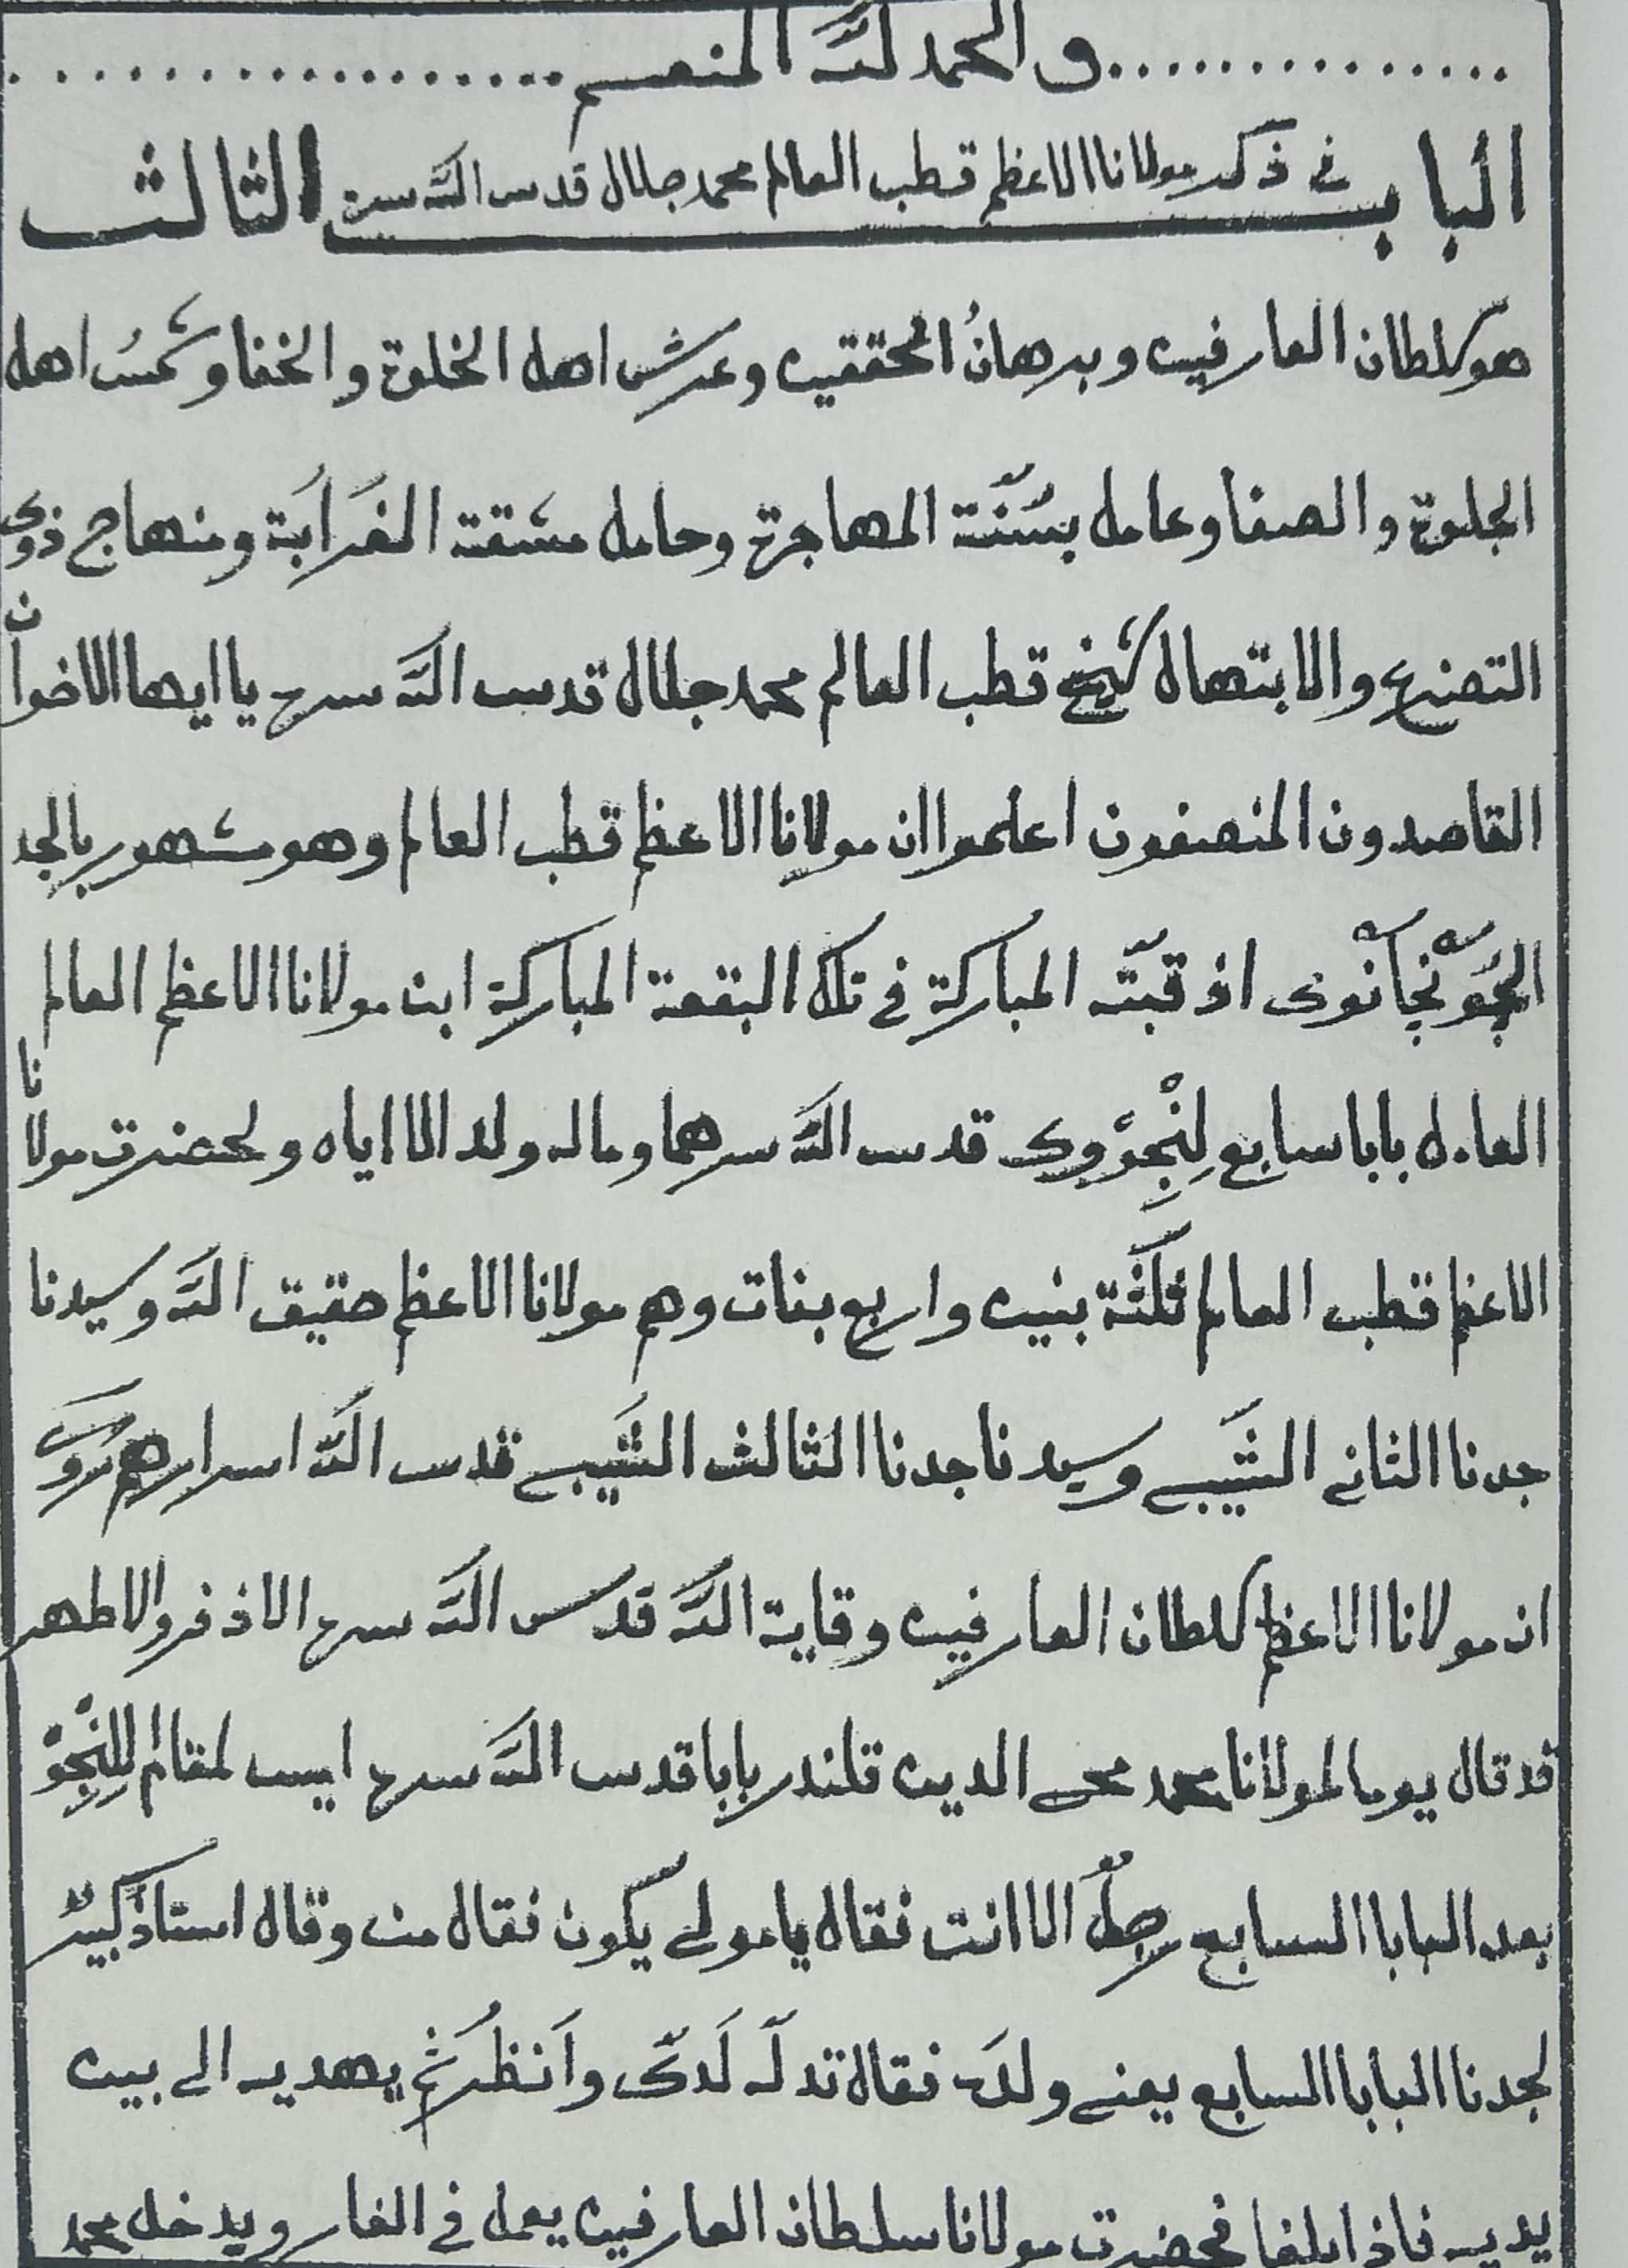 ................و الحمد لله المنعم..................
الباب في ذكر مولانا الاعظم قطب العالم محمد جلال قدس الله سره الثالث
هو سلطان العارفين وبرهانُ المحققين وعرش اهل الخلوة والخفا وشمسُ اهل
الجلوة والصفا وعامل بسُنّة المهاجرة وحامل مشقة الغَرَابَة ومنهاج ذوى
التضرع والابتهال شيخ قطب العالم محمد جلال قدس الله سره يا ايها الاخوان
القاصدون المنصفون اعلموا ان مولانا الاعظم قطب العالم وهو مشهور بالجد
اذ قبتّه المباركة في تلك البقعة المباركة ابن مولانا الاعظم العالم
العادل بابا سابع لِنْجوْوى قدس الله سرهما وماله ولد الا اياه ولحضرت مولانا
الاعظم قطب العالم ثلثة بنين واربع بنات وهم مولانا الاعظم حقيق الله وسيدنا
جدنا الثانى الشَيبى وسيدنا جدنا الثالث الشَيبى قدس الله اسرارهم رُوىَ
ان مولانا الاعظم سلطان العارفين وقاية الله قدس الله سره الاذفر والاطهر
قد قال يوما لمولانا محمد محى الدين قلندر بابا قدس الله سره ايس لمقام لِلنْجوْ
بعد البابا السابع رجلٌ الا انت فقال يا مولى يكون فقال من وقال استاذ كبيرٌ
لجدنا البابا السابع يعنى ولدَه فقال تدلّه لَدىّ وَاَنظُر ثم يهديه الى بين
يديه فاذا بلغا فحضرت مولانا سلطان العارفين يعمل في الغار ويدخل محمد